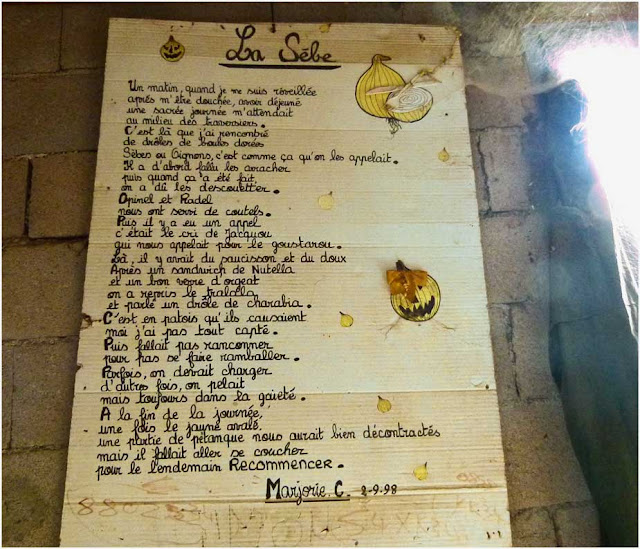 La Sébe
Un matin, quand je me suis réveillée
après m'être douchée, avoir déjeuné
une sacrée journée m'attendait
au milieu des traversiers.
C'est là que j'ai rencontré
de drôles de boules dorées
Sèbes ou Oignons, c'est comme ça qu'on les appelait.
Il a d'abord fallu les arracher
puis quand ça a été fait,
on a dû les descouetter.
Opinel et Radel
nous ont servi de coutels.
Puis il y a eu un appel
c'était le cri de Jacquou
qui nous appelait pour le goustarou.
Là, il y avait du saucisson et du doux
Après un sandwich de Nutella
et un bon verre d'orgeat
on a repris le tralalla
et parlé un drôle de charabia.
C'est en patois qu'ils causaient
moi j'ai pas tout capté.
Puis fallait pas ranconner
pour pas se faire ramballer.
Parfois, on devait charger
d'autres fois, on pelait
mais toujours dans la gaieté.
A la fin de la journée,
une fois le jaune avalé,
une partie de pétanque nous aurait bien décontractés
mais il fallait aller se coucher
pour le lendemain Recommencer.
Marjorie. C. 2-9.98